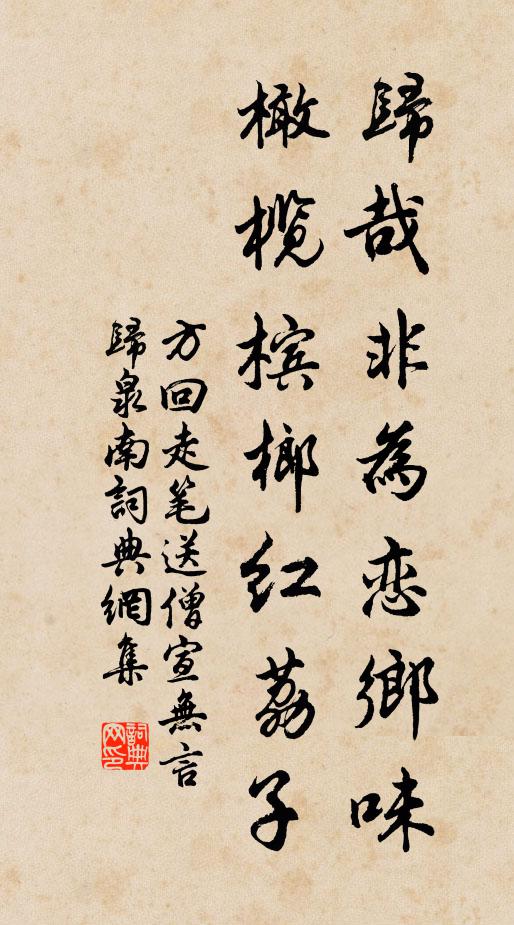 歸哉非為恋鄉味
橄榄槟榔红荔子
方回走笔送僧宣無言
歸泉南詞典網集
詞典
网印